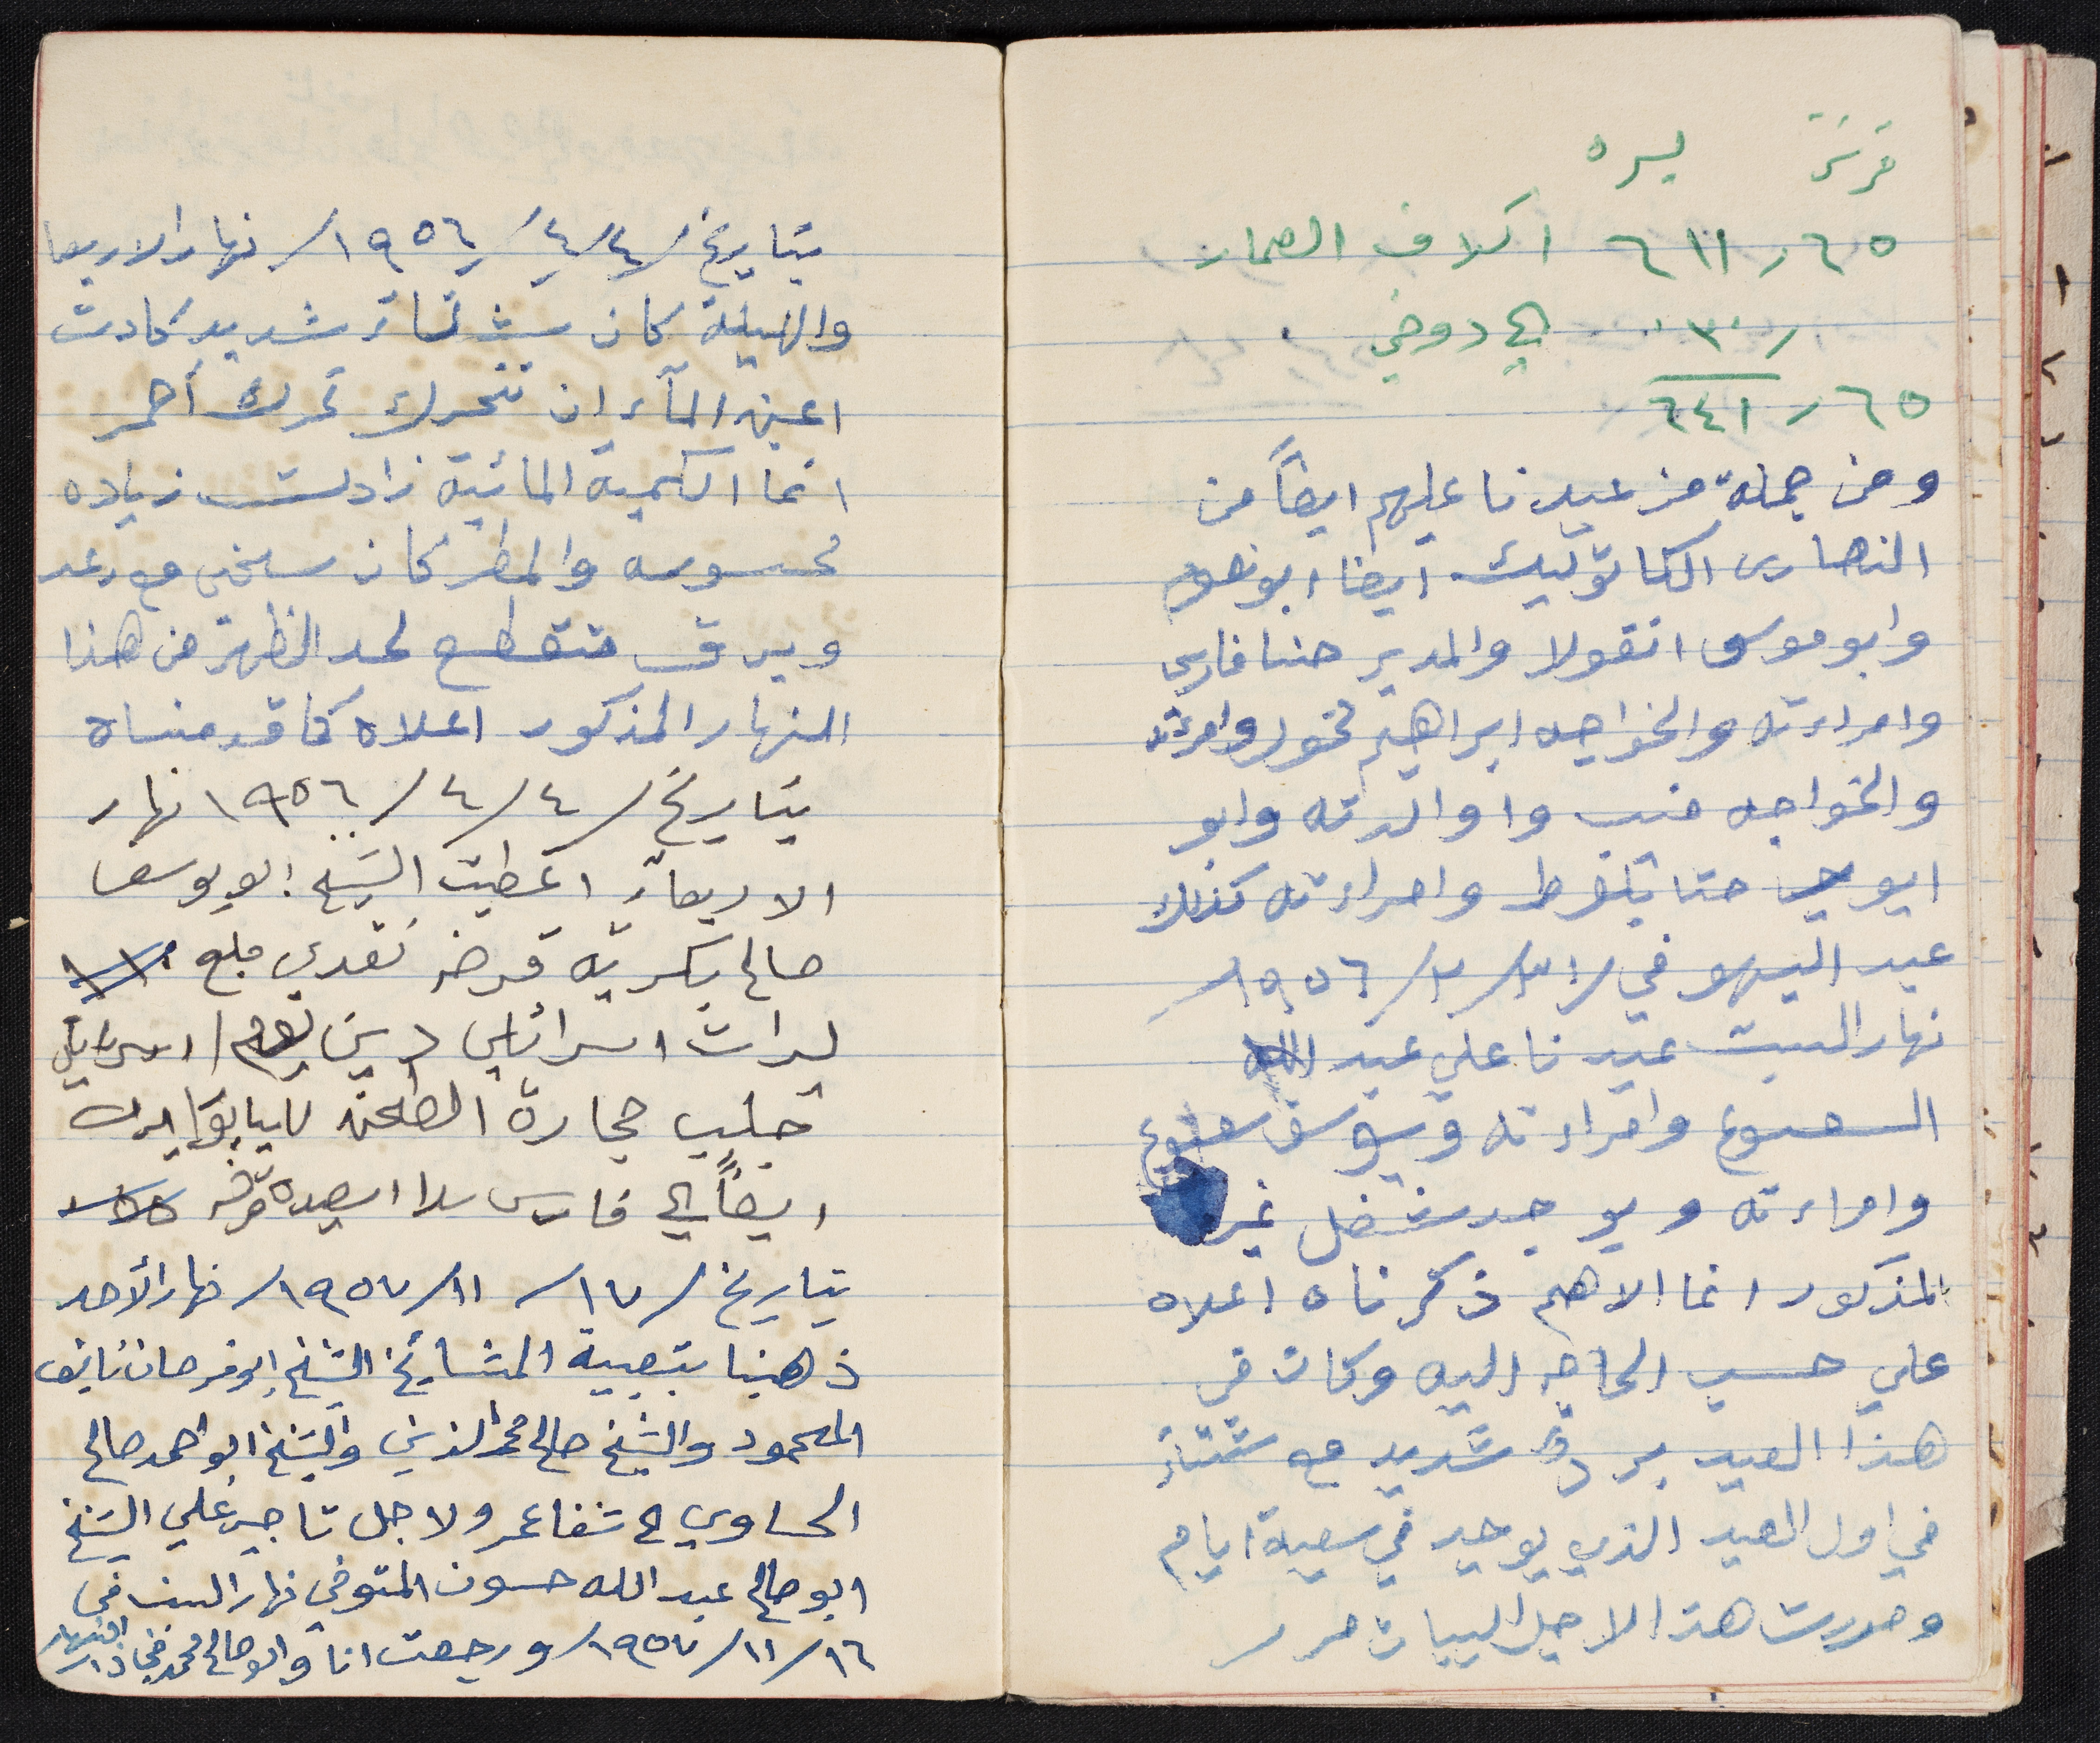 ليره
٦٥ر٦١١ اكلاف العمار
ر٣٠ الى دوخي
٦٥ر٦٤١
ومن جملة من عيدنا عليهم ايضاً من
النصارى الكاتوليك ايضا ابو
وابو موسى انقولا والمدير حنا فارس
وامراءته والخواجه ابراهيم وامرئته
والخواجه منيب واوالدته وابو
ايوب حنا وامراءته كذلك
عيد اليهو في /٣١/٣/١٩٥٦/
نهار السبت عيدنا علي عبد الله
السعسوع وامراءته ويوسف
وامراءته ويوجد غير
المذكور انما الاهم ذكرناه اعلاه
علي حسب الحاجه اليه وكان في
هذا العيد برد شديد مع شتاءٍ
في اول العيد الذي يوجد في سبعة ايام
وحررت هذا لاجل البيان حرر
بتاريخ /٤/٤/١٩٥٦/ نهار الاربعا
والليلة كان شتاء شديد كادت
اعين المآء ان تتحرك تحرك أحمر
انما الكمية المائية زادت زياده
محسوسه والمطر كان سخي مع رعد
وبرق متقطع لحد الظهر من هذا
النهار المذكور اعلاه كما قدمناه
بتاريخ /٤/٤/١٩٥٦ نهار
الاربعاء اعطيت الشيخ ابو يوسف
صالح بكريه قرضه نقدي مبلع
ليرات اسرائيلي دين
جلب حجارة الطحنه
ايضاً الى فارس
بتاريخ /١٧/١١/١٩٥٧/ نهار الأحد
ذهبنا بتصيبة المشايخ الشيخ ابو فرحان نايف
المحمود والشيخ صالح محمد الذيني والشيخ ابو احمد صالح
الحساوي الى شفاعمر ولاجل تاجير علي الشيخ
ابو صالح عبد الله حسون المتوفي نهار السبت في
١٦/١١/١٩٥٧/ ورجعت انا وابو صالح محمد في ذات النهار